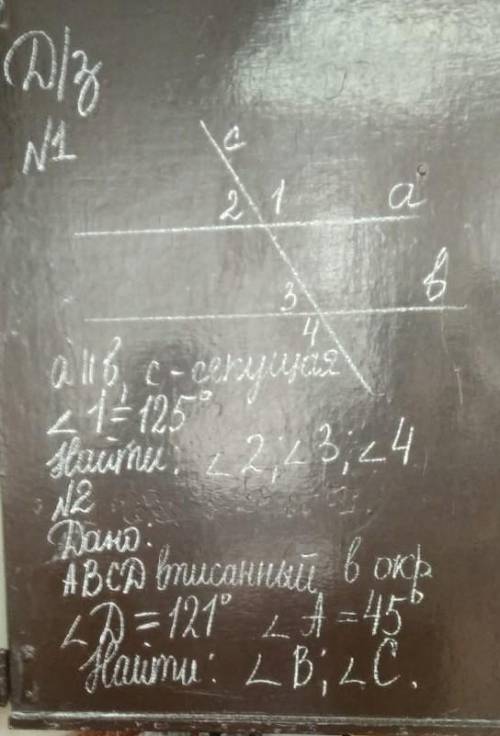 Д/з
№1
c
2 1 a
3 в
4
a || в, c - секущая
∠1 = 125°
Найти: ∠2; ∠3; ∠4
№2
Дано:
ABCD вписанный в окр
∠D = 121° ∠A = 45°
Найти: ∠B; ∠C.